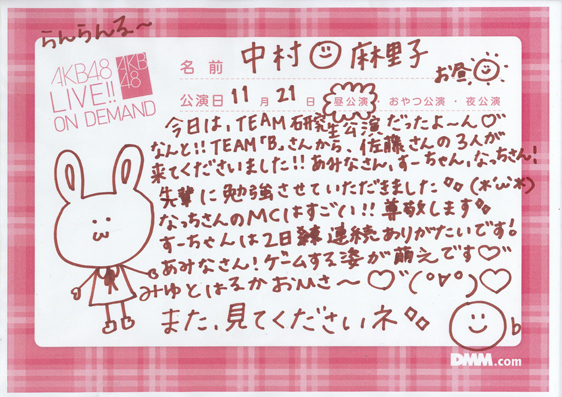 らんらんる〜
AKB48
LIVE!!
ON DEMAND
AKB
48
名前 中村 麻里子
お昼
公演日 11月21日 昼公演・おやつ公演・夜公演
今日は、TEAM研究生公演だったよ〜ん♡
なんと!!TEAM「B」さんから、佐藤さんの3人が
来てくださいました!!あみなさん、すーちゃん、なっちさん!
先輩に勉強させていただきました。(*'ω'*)
なっちさんのMCはすごい!!尊敬します。
すーちゃんは2日連続ありがたいです!
あみなさん!ゲームする姿が萌えです♡
みゆとはるかお〜♡(°∀°)♡
また、見てくださいネ。
b
DMM.com